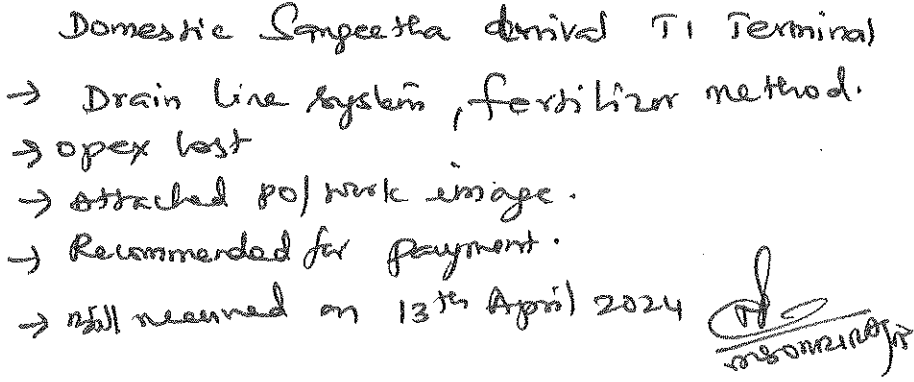 Domestic Sangeetha Arrival T1 Terminal
→ Drain line system, fertilizer method.
→ opex cost
→ Attached PO/ work image.
→ Recommended for payment.
→ Bill received on 13th April 2024